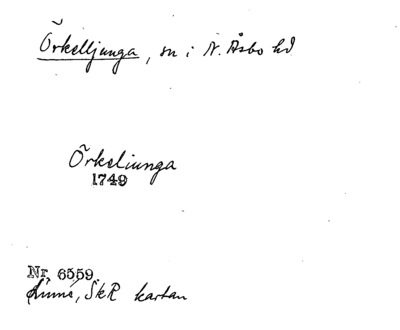 Örkelljunga, sn i N. Åsbo hd
Örkeliunga
1749
Nr 6559
Linné, SkR kartan